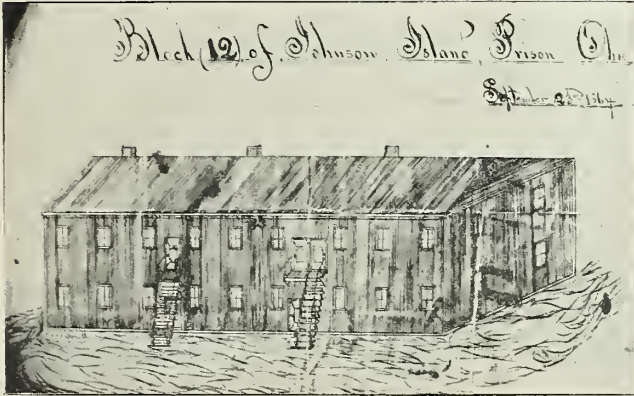 Block (12) of Johnson Island Prison
September 1864